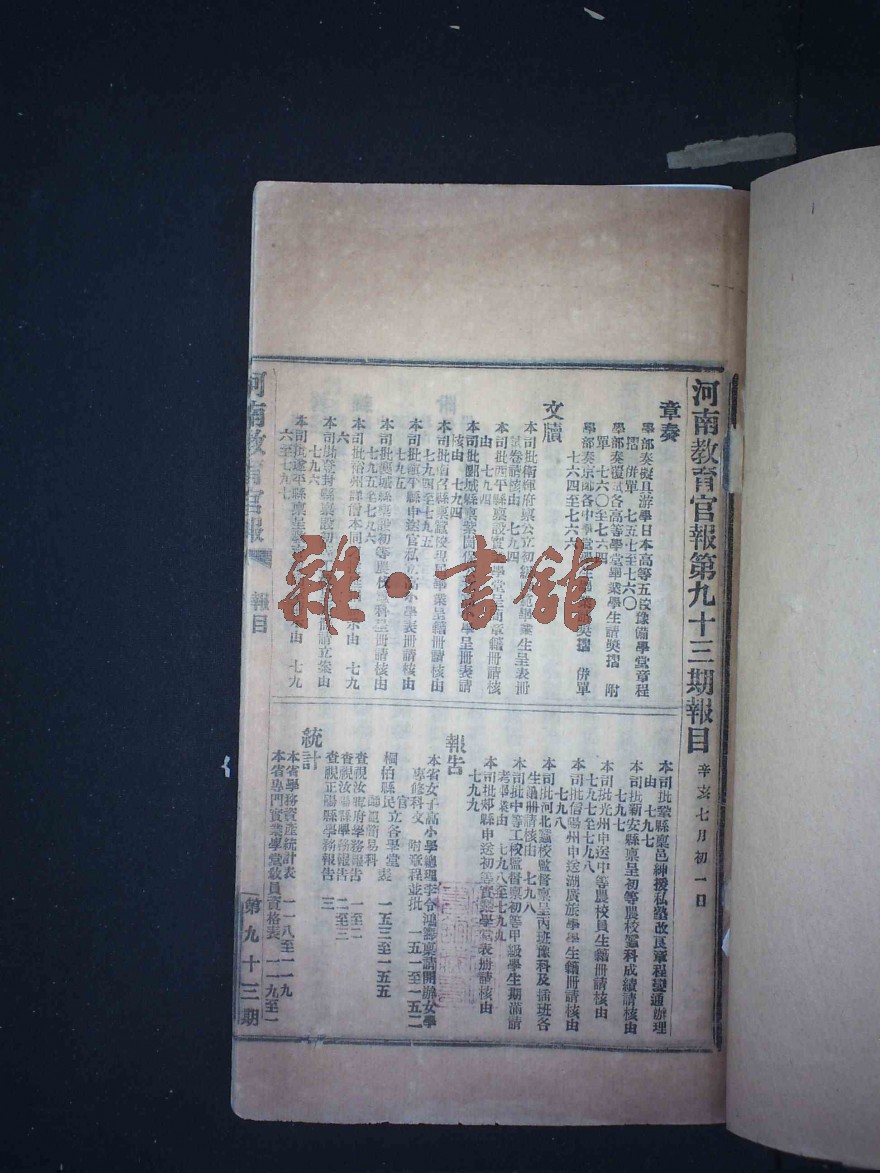 河南教育官報第九十三期報目
辛亥七月初一日
章奏
學部奏擬且游學日本高等五校豫備學堂章程
摺 併單 七五七至七六〇
學部奏覆試各高等學堂畢業學生請奬摺 附
單 七六〇至七六四
學部奏京師各中學堂學生 奬摺 併單
七六四至七六六
文牘
本司批衛輝府稟公立初級 範畢業生呈表冊
試卷請核由 七九四
本司批西平縣稟設實 學堂 簡章籍冊請核
由 七九四
核由 七九四
本司批南召縣稟 畢業呈籍冊請核由
七九四至七九五
本司批 平縣申送官私立高小學表冊請核由
七九五
本司批 城縣稟設初等農校 科呈冊請核由
七九五至七九六
本司批裕州詳僧本同 由 七九
六
本司批登封縣稟設初 請立案由
七九六
本司批遂平縣稟呈 由 七九
六至七九七
本司批鞏縣稟邑紳援私塾改良章程變通辦理
由 七九七
本司批新安縣稟呈初等農校蠶科成績請核由
七九七
本司批光州申送中等農校員生籍冊請核由
七九七至七九八
本司批信陽州申送湖廣旅學學生籍冊請核由
七九八
本司批河北蠶校監督稟呈丙班豫科及插班各
生通冊請核由 七九八
本司批中等工校監督稟初等甲級學生期滿請
考畢業由 七九八至七九九
本司批郟縣申送初等實業學堂表冊請核由
七九九
報告
本省女子高小學總理李令鴻 稟請開辦女學
專修科文 附章程並批 一五一至一五二
桐伯縣官民立各學堂表 一五三至一五五
師範簡易科
查視汝寧府學務報告 一至二
查視汝陽縣學務報告 二至三
查視正陽縣學務報告 三
統計
本省學務資產統計表 一一八至一一九
本省專門實業學堂敎員資格表 一一九至一
河南教育官報
報目
第九十三期
雜·書館